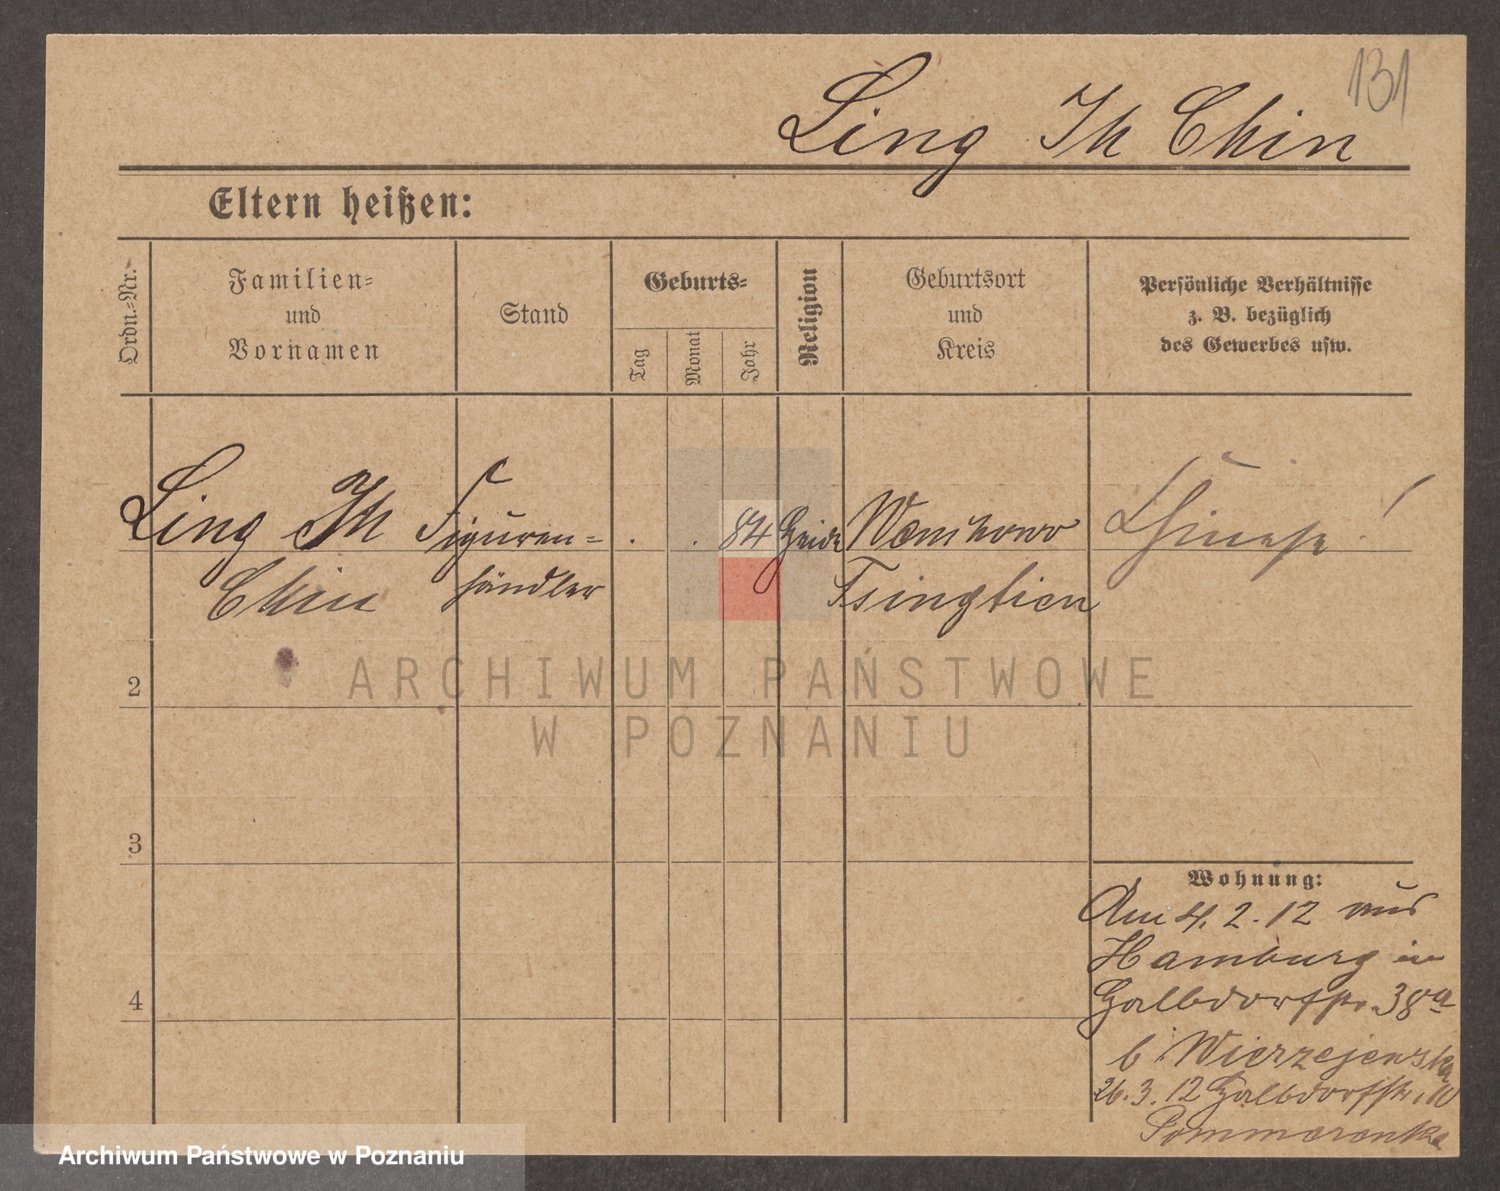 131
Ling Th Chin
Eltern heißen:
Ordn.-Nr.
Familien-
und
Vornamen
Stand
Geburts-
Tag
Monat
Jahr
Religion
Geburtsort
und
Kreis
Persönliche Verhältnisse
z. B. bezüglich
des Gewerbes usw.
Ling Th Figuren- . . 84 Heide Wenchowo Chinese!
Chin händler Tsingtien
2
ARCHIWUM PAŃSTWOWE
W POZNANIU
3
4
Wohnung:
Am 4. 2. 12 aus
Hamburg in
Halbdorfstr. 38a
b Wierzejewska
26. 3. 12 Halbdorfstr.
Pommerenke
Archiwum Państwowe w Poznaniu